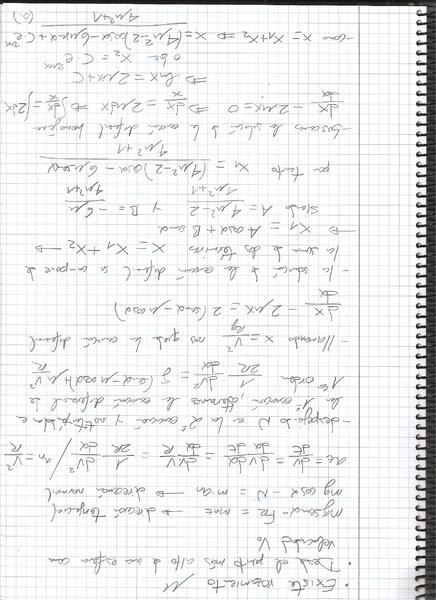 · Existe rozamiento μ
· Desde el punto más alto de una esfera con
velocidad V₀
mg senα - FR = m at → dirección tangencial
mg cosα - N = m an → dirección normal
at = dV/dt = dV/dα dα/dt = dV/dα V/R = 1/2R dV²/dα / an = V²/R
- despejando N en la 2ª ecuación y sustituyéndola en
la 1ª ecuación, obtenemos la ecuación diferencial de
1er orden 1/2R dV²/dα = g (senα - μ cosα) + μ V²/R
- llamando x = V²/Rg nos queda la ecuación diferencial
dx/dα - 2μx = 2 (senα - μ cosα)
- la solución de la ecuación diferencial se compone de
la suma de dos términos x = x₁ + x₂ →
→ x₁ = A cosα + B senα
siendo A = 4μ²-2/4μ²+1 y B = -6μ/4μ²+1
por tanto x₁ = (4μ²-2)cosα - 6μ senα/4μ²+1
- buscamos la solución de la ecuación diferencial homogénea
dx/dα - 2μx = 0 ⇒ dx/x = 2μdα ⇒ ∫dx/x = ∫2μdα
⇒ ln x = 2μα + C
o bien x₂ = C·e^2μα
- como x = x₁ + x₂ ⇒ x = (4μ²-2)cosα - 6μ senα/4μ²+1 + C·e^2μα